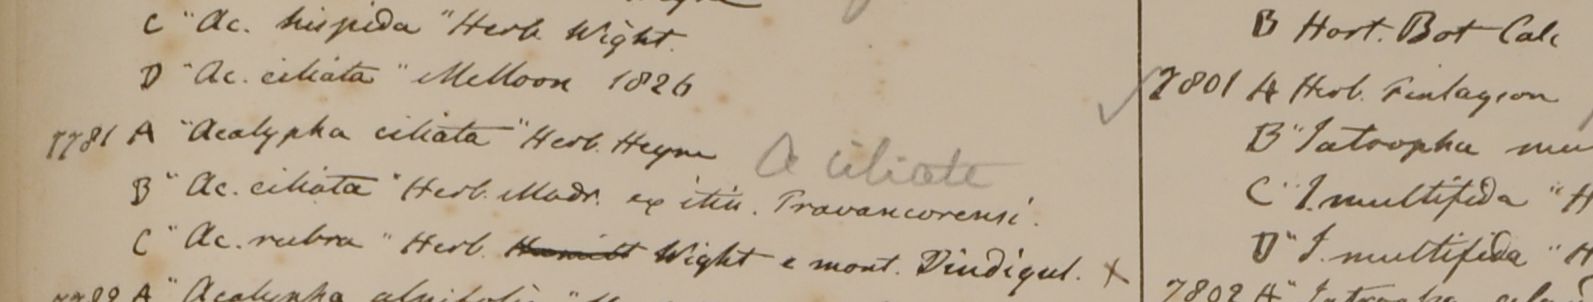 C "Ac. hispida" Herb. Wight.
D "Ac. ciliata" MClloon 1826
7781 A "Acalypha ciliata" Herb. Heyne A ciliate
B "Ac. ciliata" Herb. Madr. ex itin. Travancorensi.
C "Ac. rubra" Herb. Wight e mont. Dindigul. X
A "Acalypha alnifolia"
B Hort. Bot Calc
7801 A Herb. Finlayson
B "Jatropha mu
C "J. multifida" H
D "J. multifida" H
7802 A "Jatropha